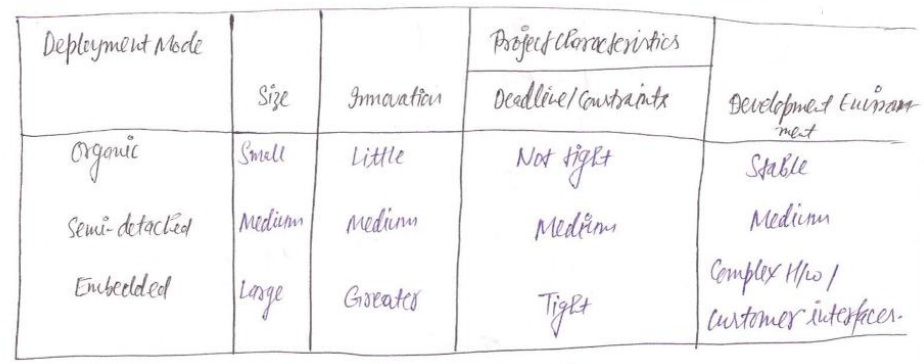 Project Characteristics
Deployment Mode
Size Innovation Deadline/Constraints Development Environ
ment
Organic Small Little Not tight Stable
Semi-detached Medium Medium Medium Medium
Embedded Large Greater Tight Complex H/w /
customer interfaces.